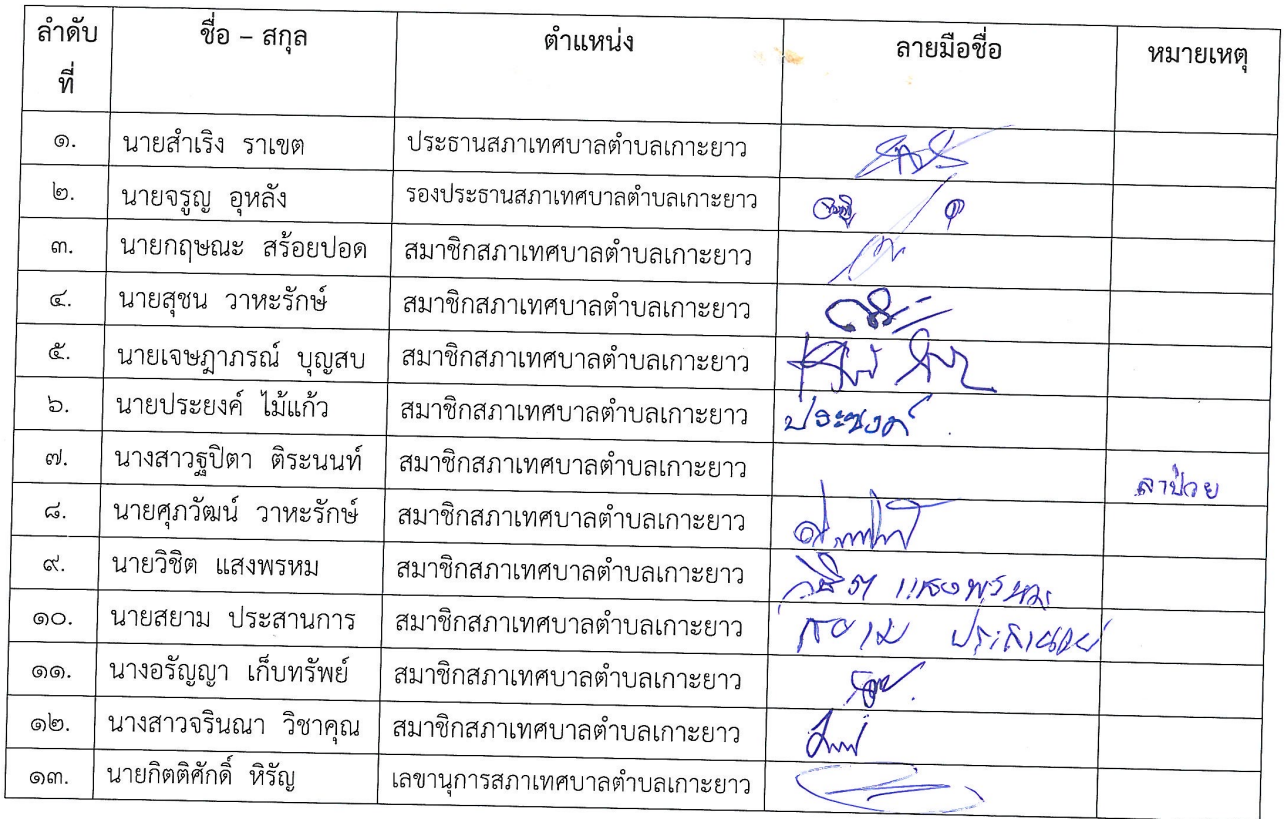 ลำดับ ชื่อ – สกุล ตำแหน่ง ลายมือชื่อ หมายเหตุ
ที่
๑. นายสำเริง ราเขต ประธานสภาเทศบาลตำบลเกาะยาว
๒. นายจรูญ อุหลัง รองประธานสภาเทศบาลตำบลเกาะยาว
๓. นายกฤษณะ สร้อยปอด สมาชิกสภาเทศบาลตำบลเกาะยาว
๔. นายสุชน วาหะรักษ์ สมาชิกสภาเทศบาลตำบลเกาะยาว
๕. นายเจษฎาภรณ์ บุญสบ สมาชิกสภาเทศบาลตำบลเกาะยาว
๖. นายประยงค์ ไม้แก้ว สมาชิกสภาเทศบาลตำบลเกาะยาว ประยงค์
๗. นางสาวฐปิตา ติระนนท์ สมาชิกสภาเทศบาลตำบลเกาะยาว ลาป่วย
๘. นายศุภวัฒน์ วาหะรักษ์ สมาชิกสภาเทศบาลตำบลเกาะยาว
๙. นายวิชิต แสงพรหม สมาชิกสภาเทศบาลตำบลเกาะยาว วิชิต แสงพรหม
๑๐. นายสยาม ประสานการ สมาชิกสภาเทศบาลตำบลเกาะยาว สยาม
๑๑. นางอรัญญา เก็บทรัพย์ สมาชิกสภาเทศบาลตำบลเกาะยาว
๑๒. นางสาวจรินณา วิชาคุณ สมาชิกสภาเทศบาลตำบลเกาะยาว
๑๓. นายกิตติศักดิ์ หิรัญ เลขานุการสภาเทศบาลตำบลเกาะยาว